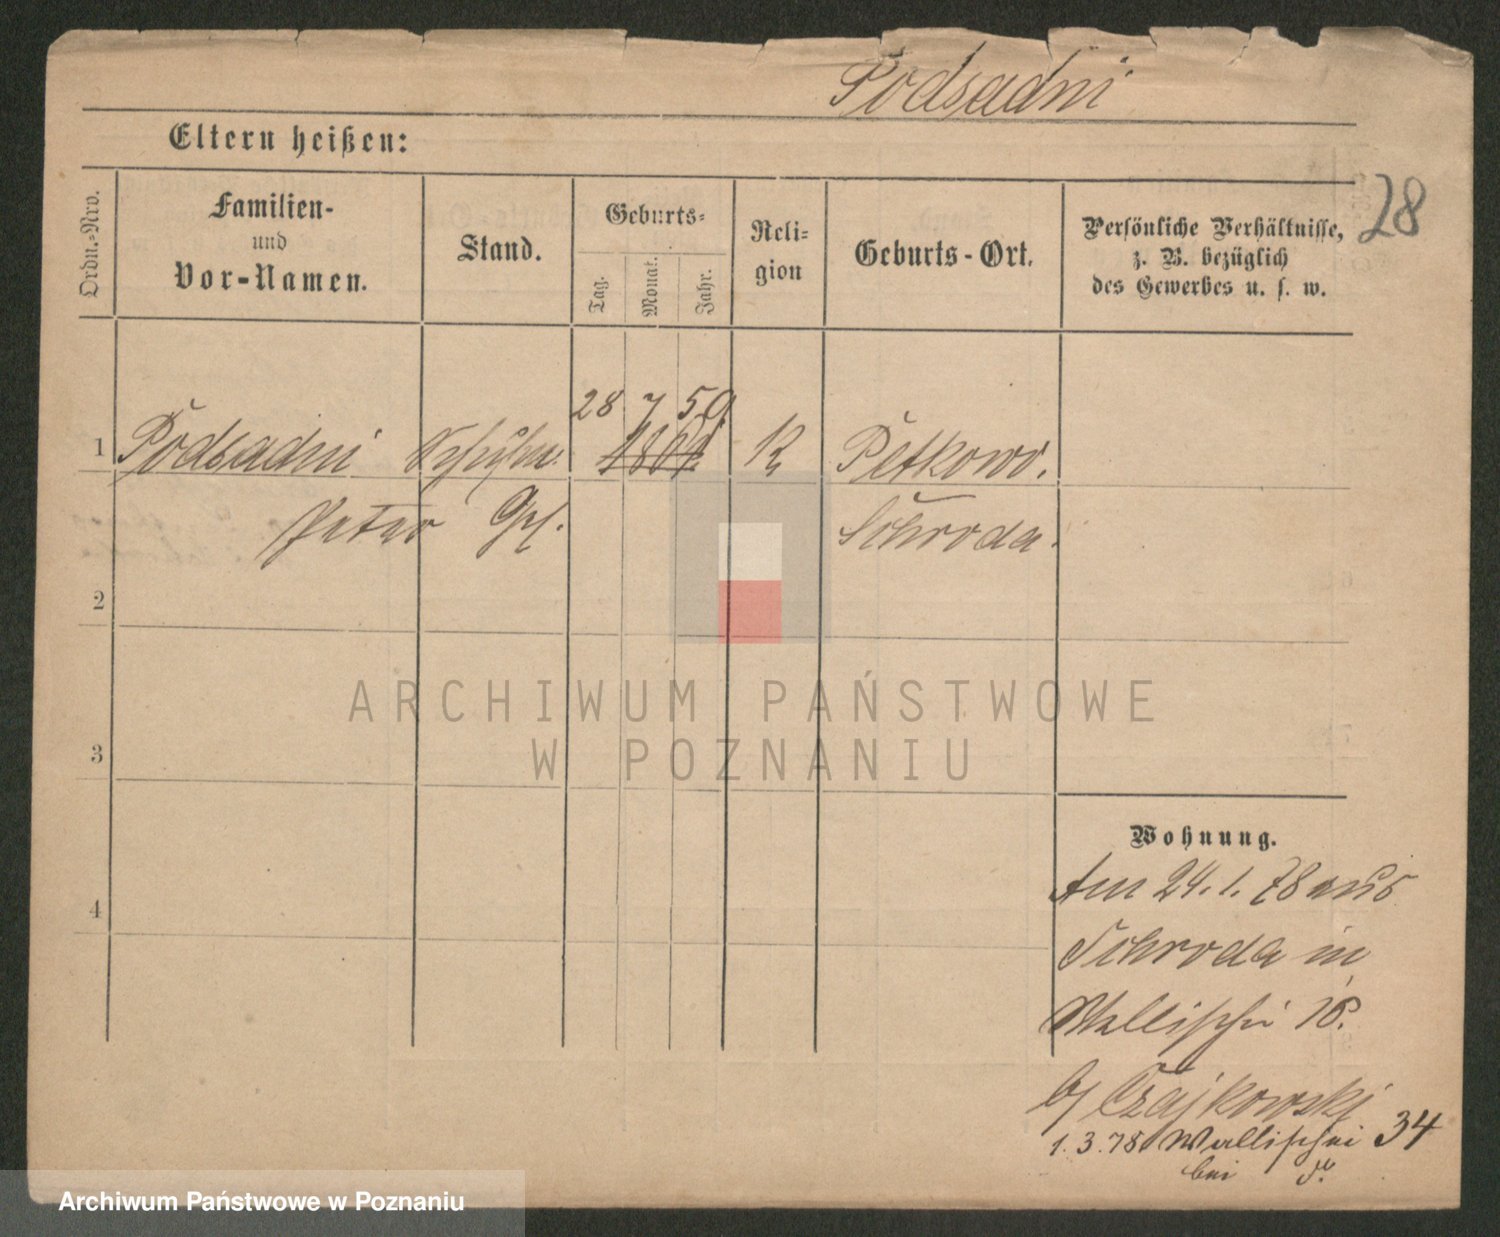 Podsadni
Eltern heißen:
28
Ordn.-Nro.
Familien-
und
Vor-Namen.
Stand.
Geburts-
Tag.
Monat.
Jahr.
Reli-
gion
Geburts-Ort.
Persönliche Verhältnisse,
z. B. bezüglich
des Gewerbes u. s. w.
28 7 59
1 Podsadni 1864 K Pětkowo.
Peter Schroda.
2
3
4
ARCHIWUM PAŃSTWOWE
W POZNANIU
Wohnung.
Am 24. 1. 78 aus
Schroda in
Wallischei 16.
b/ Czajkowski
1. 3. 78 Wallischei 34
bei
Archiwum Państwowe w Poznaniu